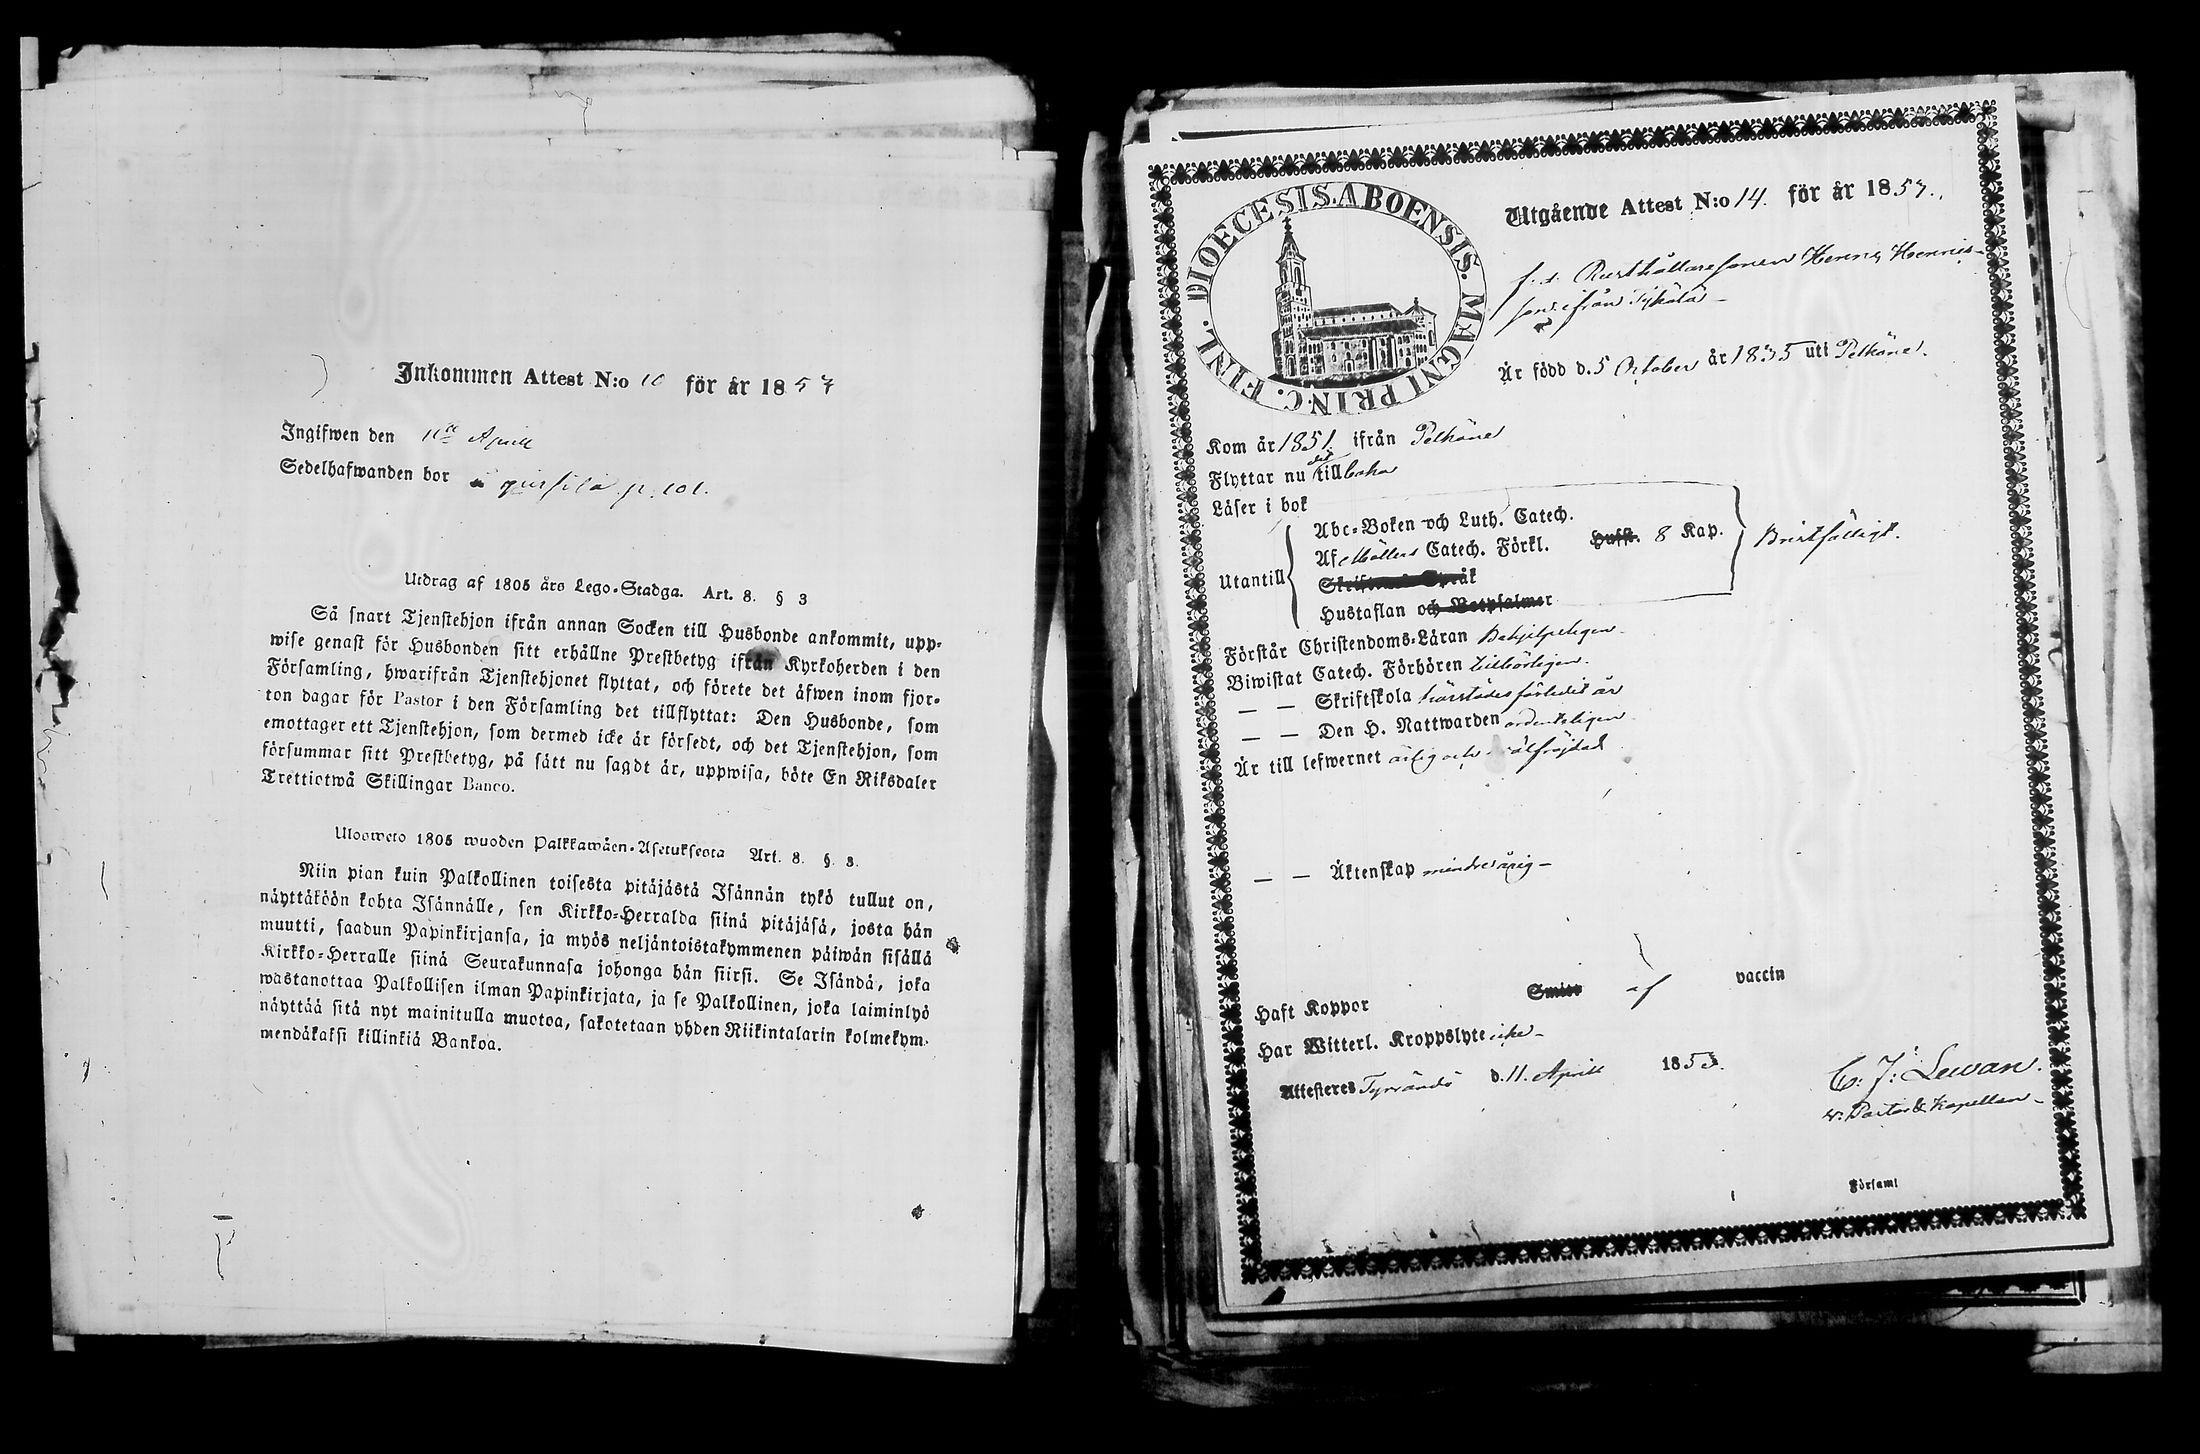 Inkommen Attest N:o 10 för år 1853
Ingifwen den 11te Aprill
Sedelhafwanden bor i p. 101.
Utdrag af 1805 års Lego-Stadga. Art. 8. § 3
Så snart Tjenstehjon ifrån annan Socken till Husbonde ankommit, upp-
wise genast för Husbonden sitt erhållne Prestbetyg ifrån Kyrkoherden i den
Församling, hwarifrån Tjenstehjonet flyttat, och förete det äfwen inom fjor-
ton dagar för Pastor i den Församling det tillflyttat: Den Husbonde, som
emottager ett Tjenstehjon, som dermed icke är försedt, och det Tjenstehjon, som
försummar sitt Prestbetyg, på sätt nu sagdt är, uppwisa, böte En Riksdaler
Trettiotwå Skillingar Banco.
Ulosweto 1805 wuoden Palkkawäen-Asetuksesta Art. 8. §. 3.
Niin pian kuin Palkollinen toisesta pitäjästä Isännän tykö tullut on,
näyttäköön kohta Isännälle, sen Kirkko-Herralda siinä pitäjäsä, josta hän
muutti, saadun Papinkirjansa, ja myös neljäntoistakymmenen päiwän sisällä
Kirkko-Herralle siinä Seurakunnasa johonga hän siirsi. Se Isändä, joka
wastanottaa Palkollisen ilman Papinkirjata, ja se Palkollinen, joka laiminlyö
näyttää sitä nyt mainitulla muotoa, sakotetaan yhden Riikintalarin kolmekym-
mendäkaksi killinkiä Bankoa.
DIOECESIS. ABOENSIS. MAGNI PRINC. FINL.
Utgående Attest N:o 14. för år 1853.
f.d. Rusthållaresonen Henric Henrics-
son ifrån
Är född d. 5 October år 1835 uti Pelkäne.
Kom år 1851 ifrån Pelkäne
Flyttar nu dit tillbaka
Läser i bok
Abc-Boken och Luth. Catech.
Af Möllers Catech. Förkl. Hufst. 8 Kap.
Utantill
Bristfälligt.
Skriftenes Språk
Hustaflan och Botpsalmer
Förstår Christendoms-Läran Behjelpeligen
Biwistat Catech. Förhören tillbörligen.
— — Skriftskola härstädes förledit år
— — Den H. Nattwarden ordenteligen
Är till lefwernet ärlig och wälfrejdad
— — Äktenskap mindreårig —
Haft Koppor Smitt af vaccin
Har Witterl. Kroppslyte icke —
Attesteres Tyrvändö d. 11. Aprill 1853.
C: J: Lewan.
v: Pastor & Kapellan —
Församl